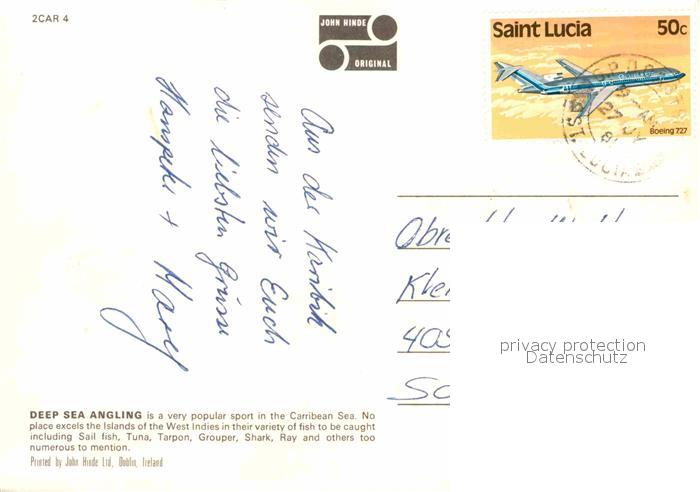 2CAR 4
JOHN HINDE
ORIGINAL
Saint Lucia 50c
Boeing 727
Aus der Karibik
senden wir Euch
die liebsten Grüsse
Hanspeter +
privacy protection
Datenschutz
DEEP SEA ANGLING is a very popular sport in the Carribean Sea. No
place excels the Islands of the West Indies in their variety of fish to be caught
including Sail fish, Tuna, Tarpon, Grouper, Shark, Ray and others too
numerous to mention.
Printed by John Hinde Ltd, Dublin, Ireland